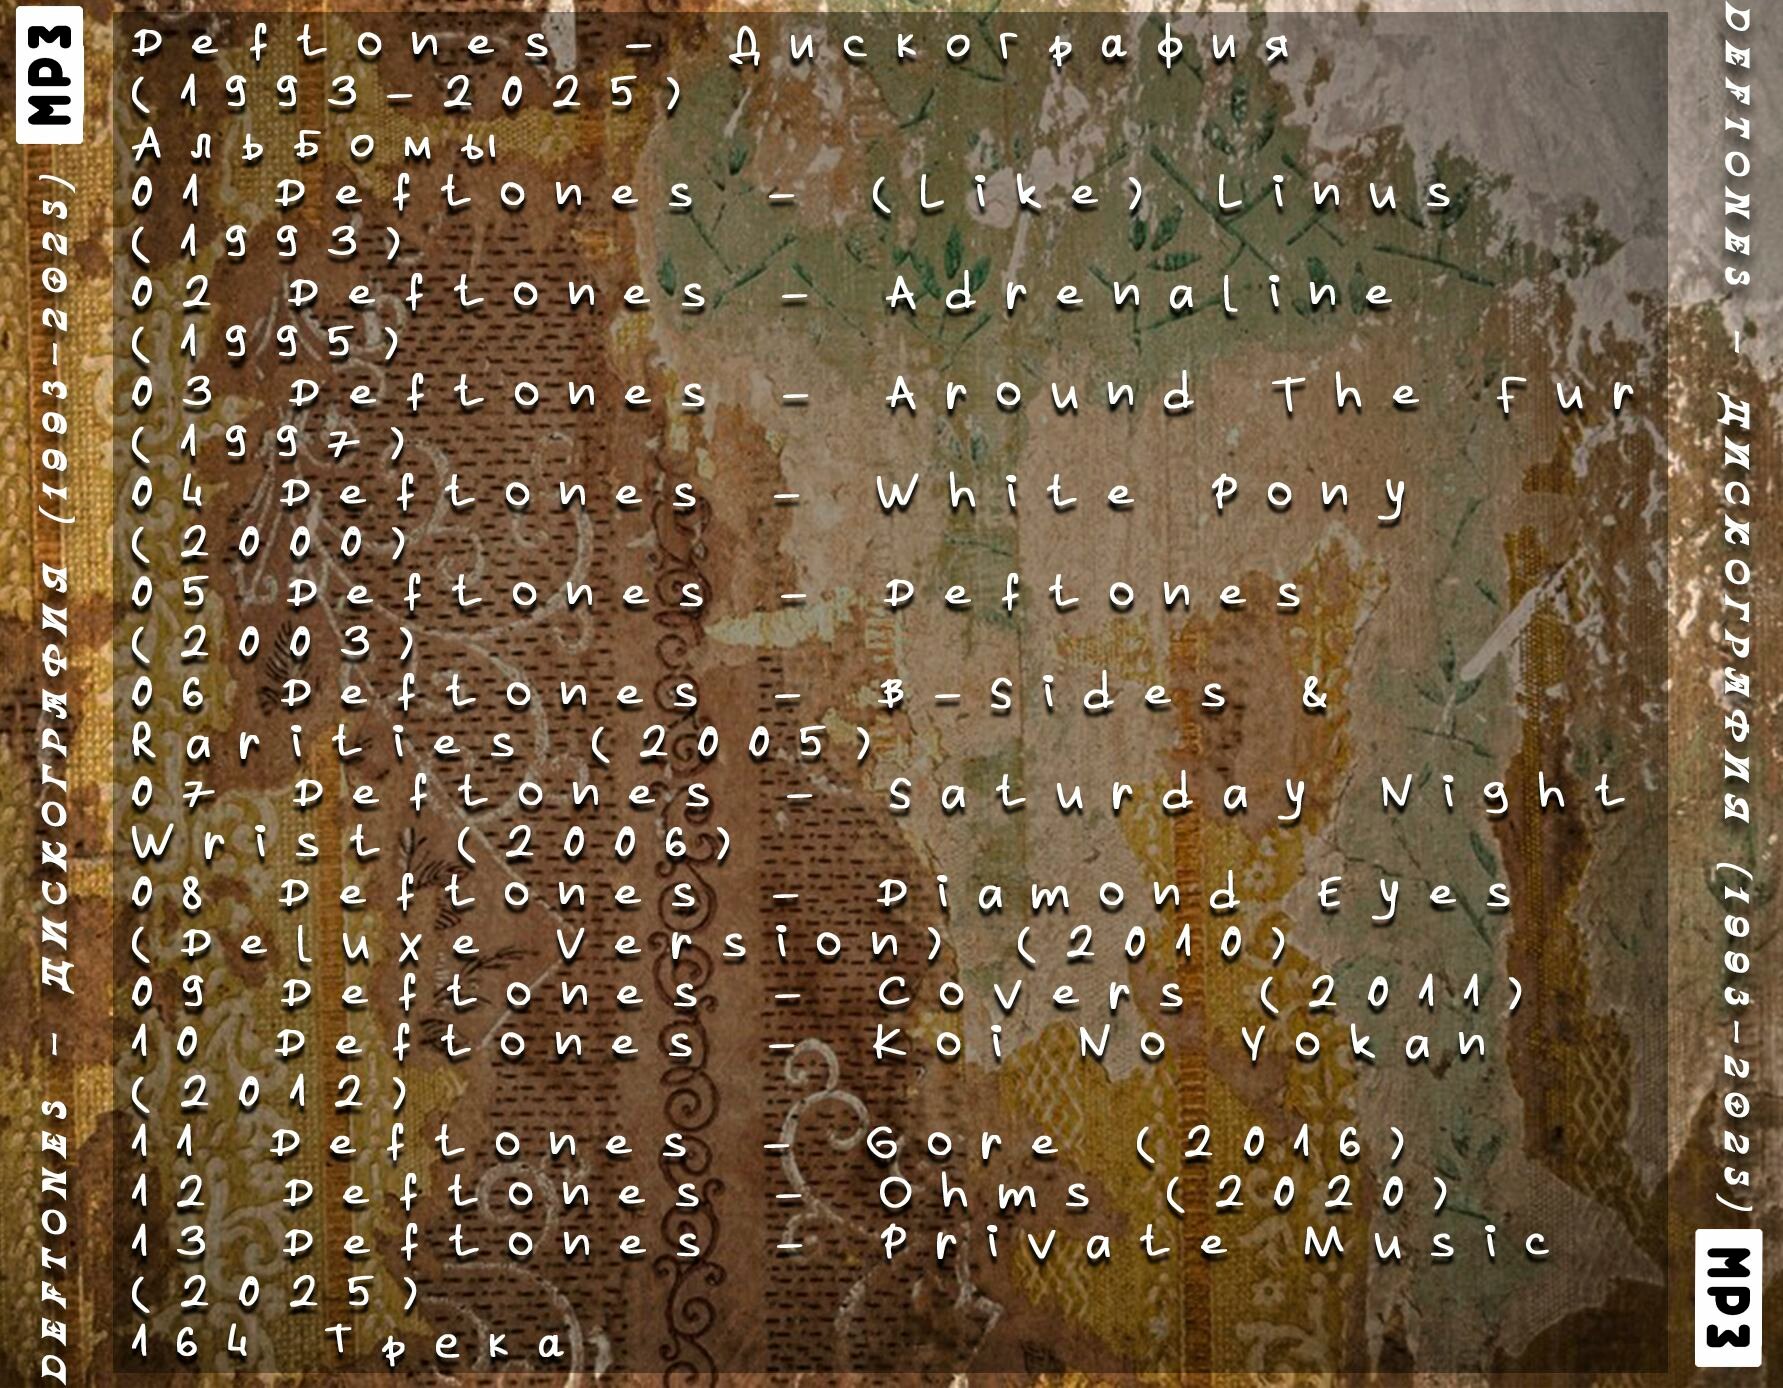 MP3
DEFTONES - ДИСКОГРАФИЯ (1993-2025)
Deftones - Дискография
(1993-2025)
Альбомы
01 Deftones - (Like) Linus
(1993)
02 Deftones - Adrenaline
(1995)
03 Deftones - Around The Fur
(1997)
04 Deftones - White Pony
(2000)
05 Deftones - Deftones
(2003)
06 Deftones - B-Sides &
Rarities (2005)
07 Deftones - Saturday Night
Wrist (2006)
08 Deftones - Diamond Eyes
(Deluxe Version) (2010)
09 Deftones - Covers (2011)
10 Deftones - Koi No Yokan
(2012)
11 Deftones - Gore (2016)
12 Deftones - Ohms (2020)
13 Deftones - Private Music
(2025)
164 Трека
DEFTONES - ДИСКОГРАФИЯ (1993-2025)
MP3